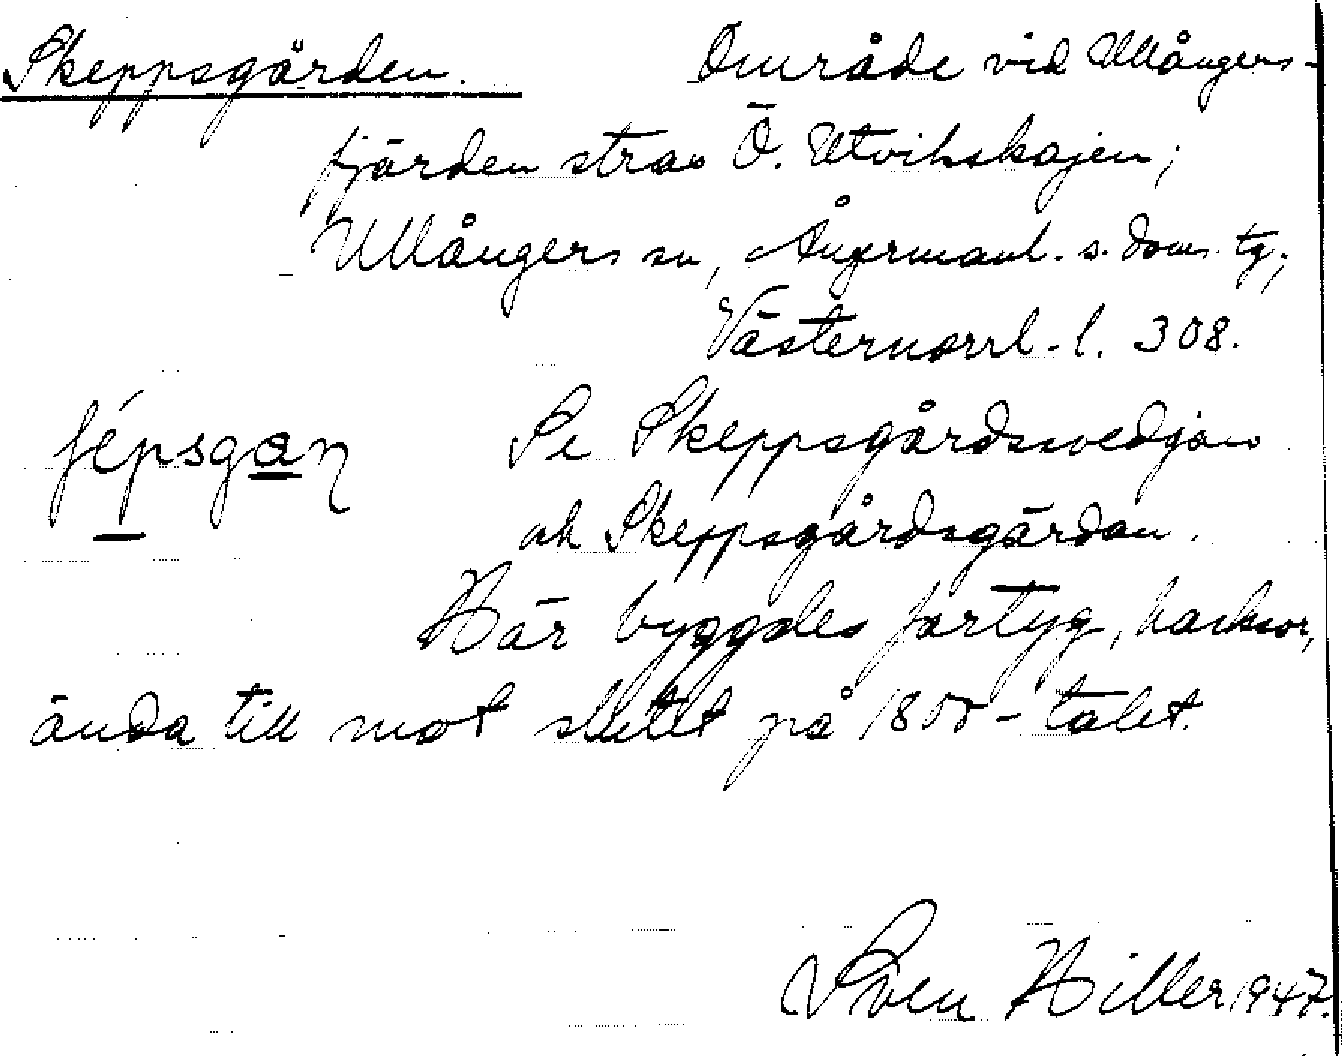 Skeppsgården. Område vid Ullångers-
fjärden strax Ö. Utvikskajen;
Ullångers sn, Ångermanl. s. doms. tg;
Västernorrl. l. 308.
ʃépsgan Se Skeppsgårdssvedjan
och Skeppsgårdsgärdan.
Här byggdes fartyg, harkor,
ända till mot slutet på 1800-talet.
Sven Hiller 1947.